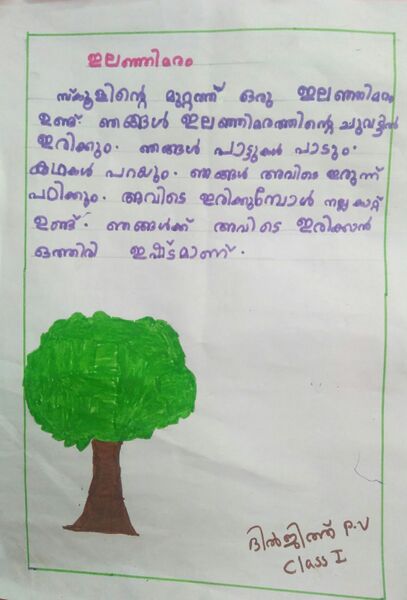 ഇലഞ്ഞിമരം
സ്കൂളിന്റെ മുറ്റത്ത് ഒരു ഇലഞ്ഞിമരം
ഉണ്ട് ഞങ്ങൾ ഇലഞ്ഞിമരത്തിന്റെ ചുവട്ടിൽ
ഇരിക്കും. ഞങ്ങൾ പാട്ടുകൾ പാടും.
കഥകൾ പറയും. ഞങ്ങൾ അവിടെ ഇരുന്ന്
പഠിക്കും. അവിടെ ഇരിക്കുമ്പോൾ നല്ല കാറ്റ്
ഉണ്ട്. ഞങ്ങൾക്ക് അവിടെ ഇരിക്കാൻ
ഒത്തിരി ഇഷ്ട്ടമാണ്.
ദിൽജിത്ത് P.V
Class I